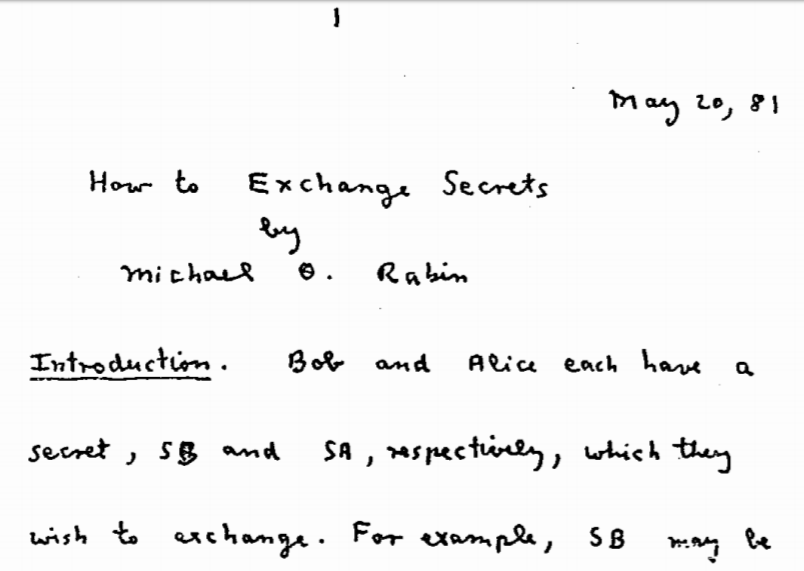 1
May 20, 81
How to Exchange Secrets
by
Michael O. Rabin
Introduction. Bob and Alice each have a
secret, SB and SA, respectively, which they
wish to exchange. For example, SB may be